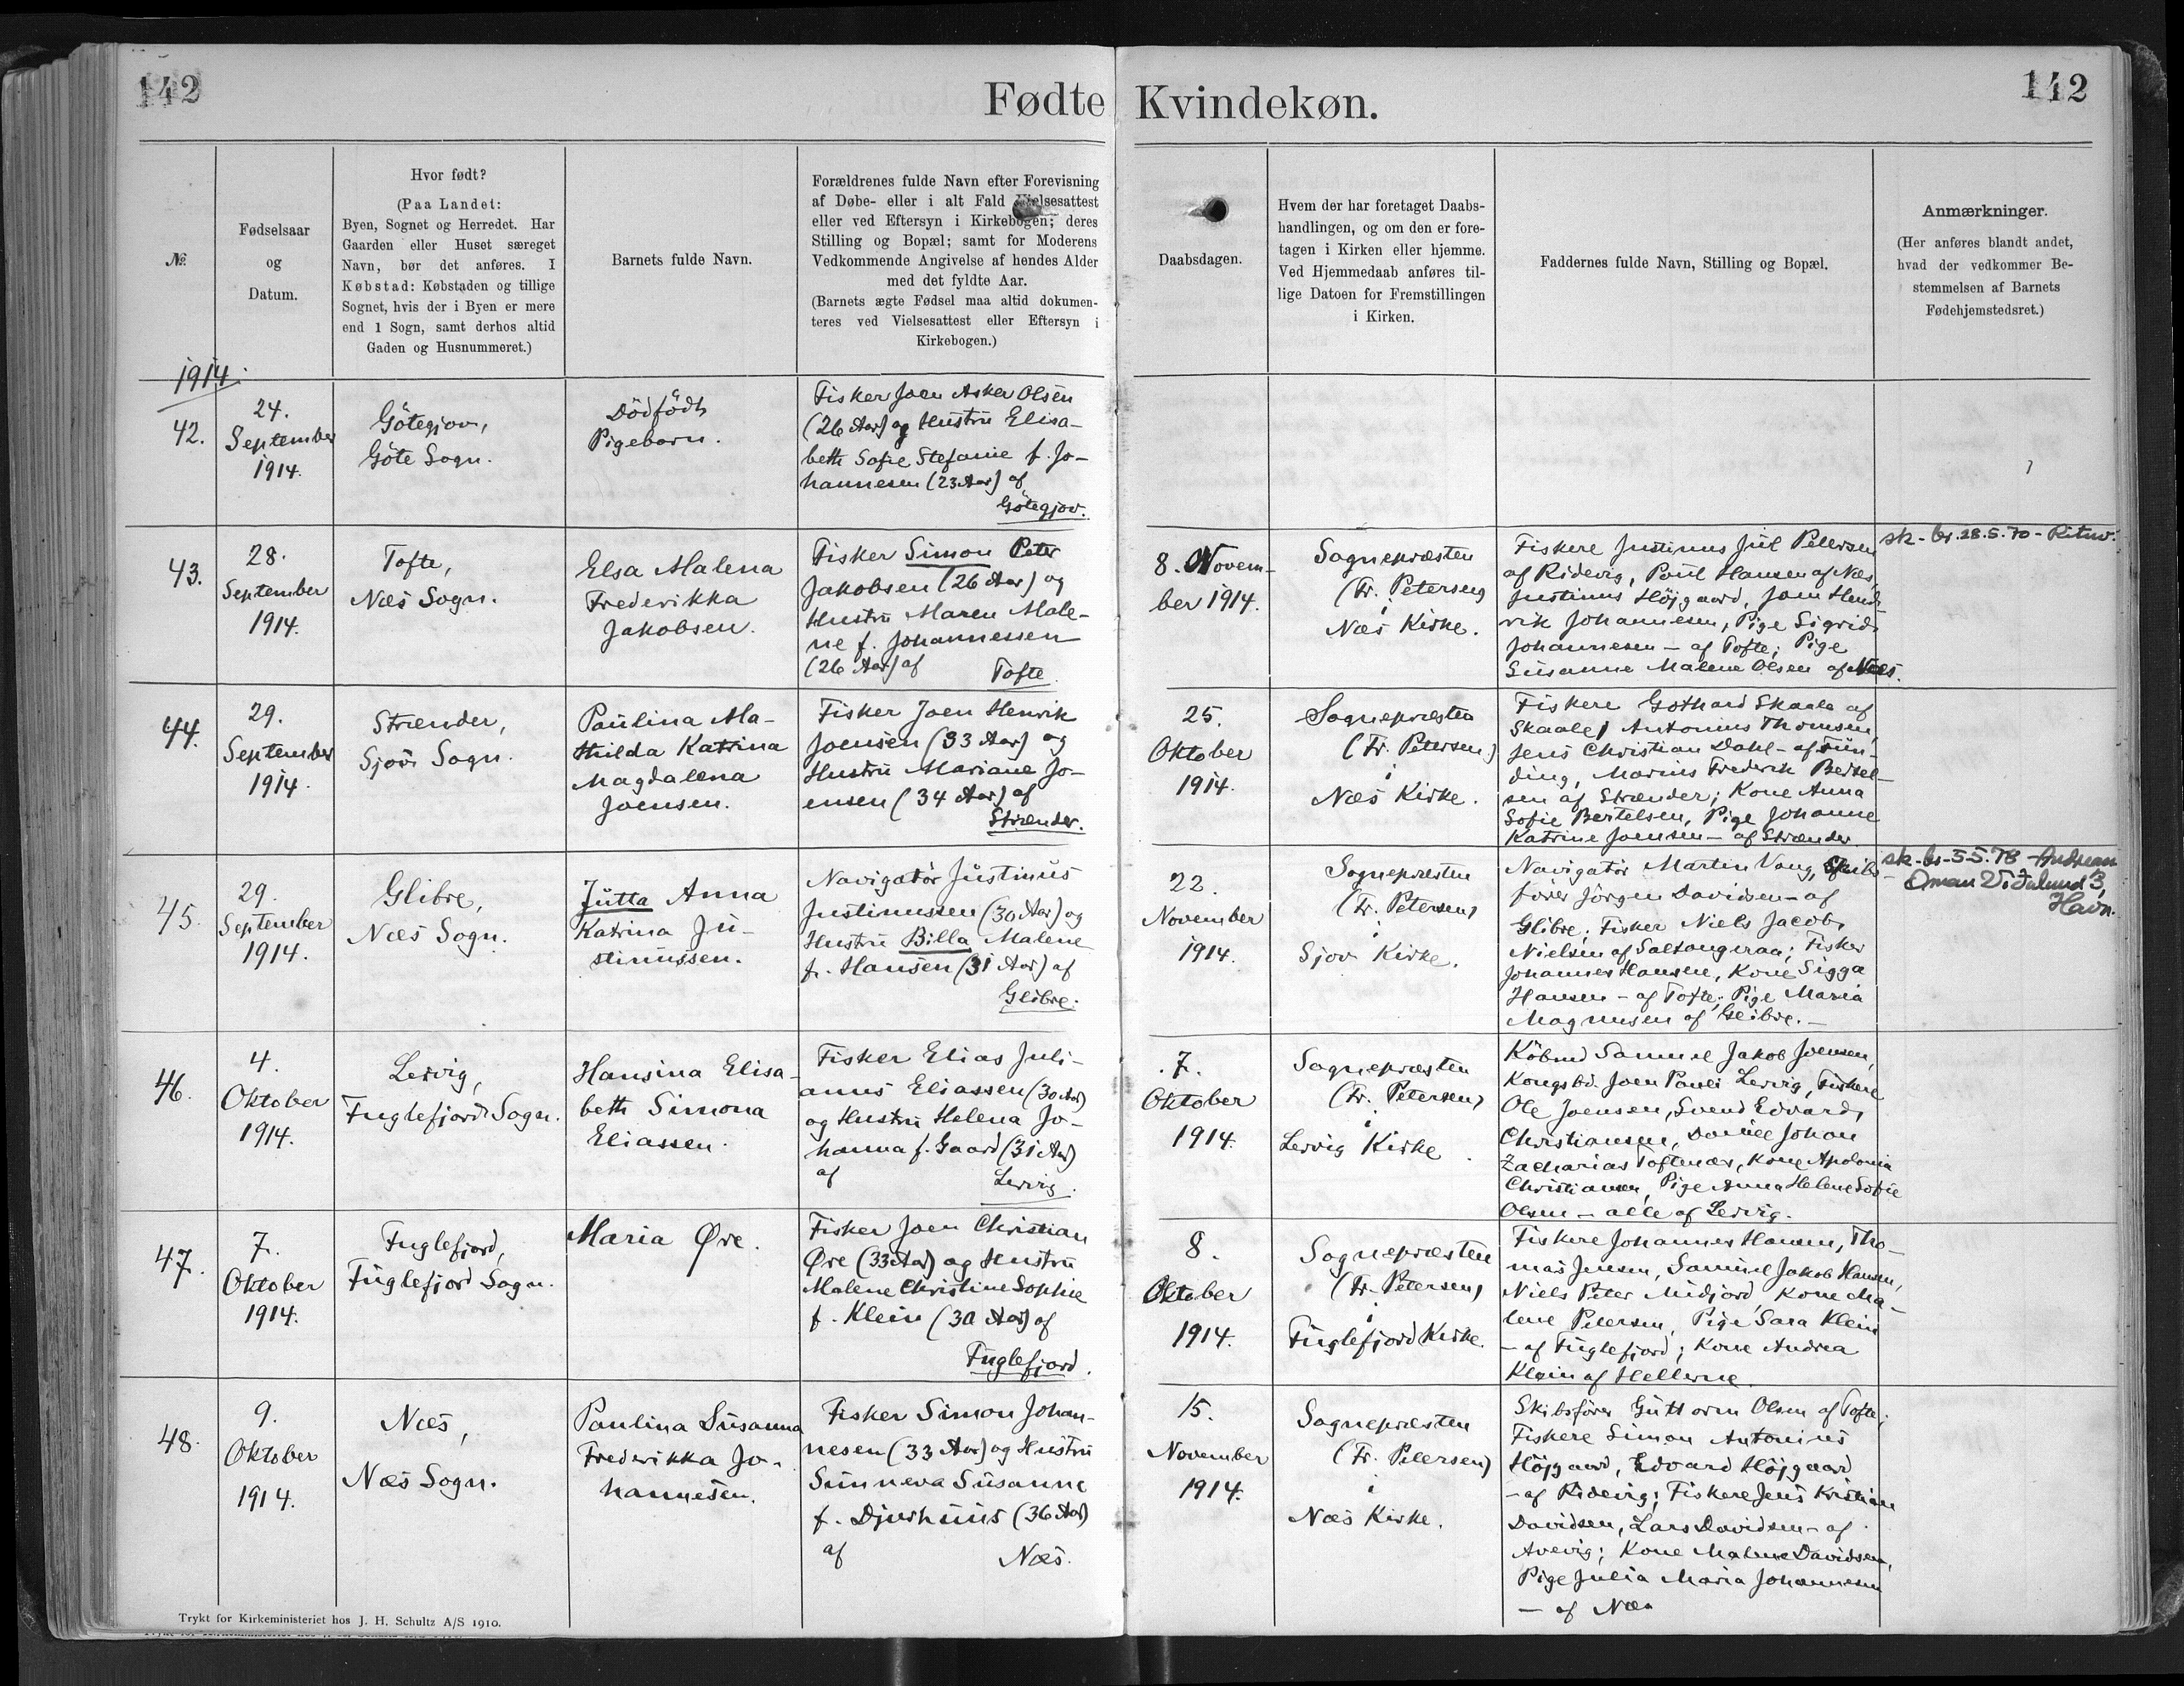 142
Fødte Kvindekøn.
142
№
Fødselsaar
og
Datum.
Hvor født?
(Paa Landet:
Byen, Sognet og Herredet. Har
Gaarden eller Huset særeget
Navn, bør det anføres. I
Købstad: Købstaden og tillige
Sognet, hvis der i Byen er mere
end 1 Sogn, samt derhos altid
Gaden og Husnummeret.)
Barnets fulde Navn.
Forældrenes fulde Navn efter Forevisning
af Døbe- eller i alt Fald Vielsesattest
eller ved Eftersyn i Kirkebogen; deres
Stilling og Bopæl; samt for Moderens
Vedkommende Angivelse af hendes Alder
med det fyldte Aar.
(Barnets ægte Fødsel maa altid dokumen-
teres ved Vielsesattest eller Eftersyn i
Kirkebogen.)
Daabsdagen.
Hvem der har foretaget Daabs-
handlingen, og om den er fore-
tagen i Kirken eller hjemme.
Ved Hjemmedaab anføres til-
lige Datoen for Fremstillingen
i Kirken.
Faddernes fulde Navn, Stilling og Bopæl.
Anmærkninger.
(Her anføres blandt andet,
hvad der vedkommer Be-
stemmelsen af Barnets
Fødehjemstedsret.)
1914.
42.
24.
September
1914.
Götegjov,
Göte Sogn.
Dödfödt
Pigebarn.
Fisker Joen Asker Olsen
(26 Aar) og Hustru Elisa-
beth Sofie Stefanie f. Jo-
hannesen (23 Aar) af
Götegjov.
43.
28.
September
1914.
Tofte,
Næs Sogn.
Elsa Malena
Frederikka
Jakobsen.
Fisker Simon Peter
Jakobsen (26 Aar) og
Hustru Maren Male-
ne f. Johannessen
(26 Aar) af
Tofte.
8. Novem-
ber 1914.
Sognepræsten
(Fr. Petersen)
i
Næs Kirke.
Fiskere Justinus Juel Petersen
af Ridevig, Poul Hansen af Næs,
Justinus Höjgaard, Joen Hend-
rik Johannesen, Pige Sigrid
Johannesen - af Tofte; Pige
Susanne Malene Olsen af Næs.
sk-br. 28.5.70 -
44.
29.
September
1914.
Strænder,
Sjov Sogn.
Paulina Ma-
thilda Katrina
Magdalena
Joensen.
Fisker Joen Henrik
Joensen (33 Aar) og
Hustru Mariane Jo-
ensen (34 Aar) af
Strænder.
25.
Oktober
1914.
Sognepræsten
(Fr. Petersen)
i
Næs Kirke.
Fiskere Gothard Skaale af
Skaale, Antonius Thomsen,
Jens Christian Dahl - af Fun-
ding, Marius Frederik Bertel-
sen af Strænder; Kone Anna
Sofie Bertelsen, Pige Johanne
Katrine Joensen - af Strænder
45.
29.
September
1914.
Glibre,
Næs Sogn.
Jutta Anna
Katrina Ju-
stinussen.
Navigatör Justinus
Justinussen (30 Aar) og
Hustru Billa Malene
f. Hansen (31 Aar) af
Glibre.
22.
November
1914.
Sognepræsten
(Fr. Petersen)
i
Sjov Kirke.
Navigatör Martin Vang, Skibs-
förer Jörgen Davidsen - af
Glibre; Fisker Niels Jacob
Nielsen af Saltangeraa; Fisker
Johannes Hansen, Kone Sigga
Hansen - af Tofte; Pige Maria
Magnusen af Glibre. -
sk-br-5-5.78 Andrean
Oman 3,
Havn.
46.
4.
Oktober
1914.
Lervig,
Fuglefjord Sogn.
Hansina Elisa-
beth Simona
Eliassen.
Fisker Elias Juli-
anus Eliassen (30 Aar)
og Hustru Helena Jo-
hanna f. Gaard (31 Aar)
af
Lervig.
7.
Oktober
1914.
Sognepræsten
(Fr. Petersen)
i
Lervig Kirke.
Köbmd Samuel Jakob Joensen,
Kongsbd. Joen Pauli Lervig, Fiskere
Ole Joensen, Svend Edvard
Christiansen, Daniel Johan
Zacharias Toftenæs, Kone Apolonia
Christiansen, Pige Anna Helene Sofie
Olsen - alle af Lervig.
47.
7.
Oktober
1914.
Fuglefjord,
Fuglefjord Sogn.
Maria Øre.
Fisker Joen Christian
Øre (33 Aar) og Hustru
Malene Christine Sophie
f. Klein (30 Aar) af
Fuglefjord.
8.
Oktober
1914.
Sognepræsten
(Fr. Petersen)
i
Fuglefjord Kirke.
Fiskere Johannes Hansen, Tho-
mas Jensen, Samuel Jakob Hansen,
Niels Peter Midjord, Kone Ma-
lene Petersen, Pige Sara Klein
- af Fuglefjord; Kone Andrea
Klein af Hellerne.
48.
9.
Oktober
1914.
Næs,
Næs Sogn.
Paulina Susanna
Frederikka Jo-
hannesen.
Fisker Simon Johan-
nesen (33 Aar) og Hustru
Sunneva Susanne
f. Djurhuus (36 Aar)
af
Næs.
15.
November
1914.
Sognepræsten
(Fr. Petersen)
i
Næs Kirke.
Skibsförer Guttorm Olsen af Tofte;
Fiskere Simon Antonius
Höjgaard, Edvard Höjgaard
- af Ridevig; Fiskere Jens Kristian
Davidsen, Lars Davidsen - af
Avevig; Kone Malene Davidsen,
Pige Julia Maria Johannesen
- af Næs
Trykt for Kirkeministeriet hos J. H. Schultz A/S 1910.